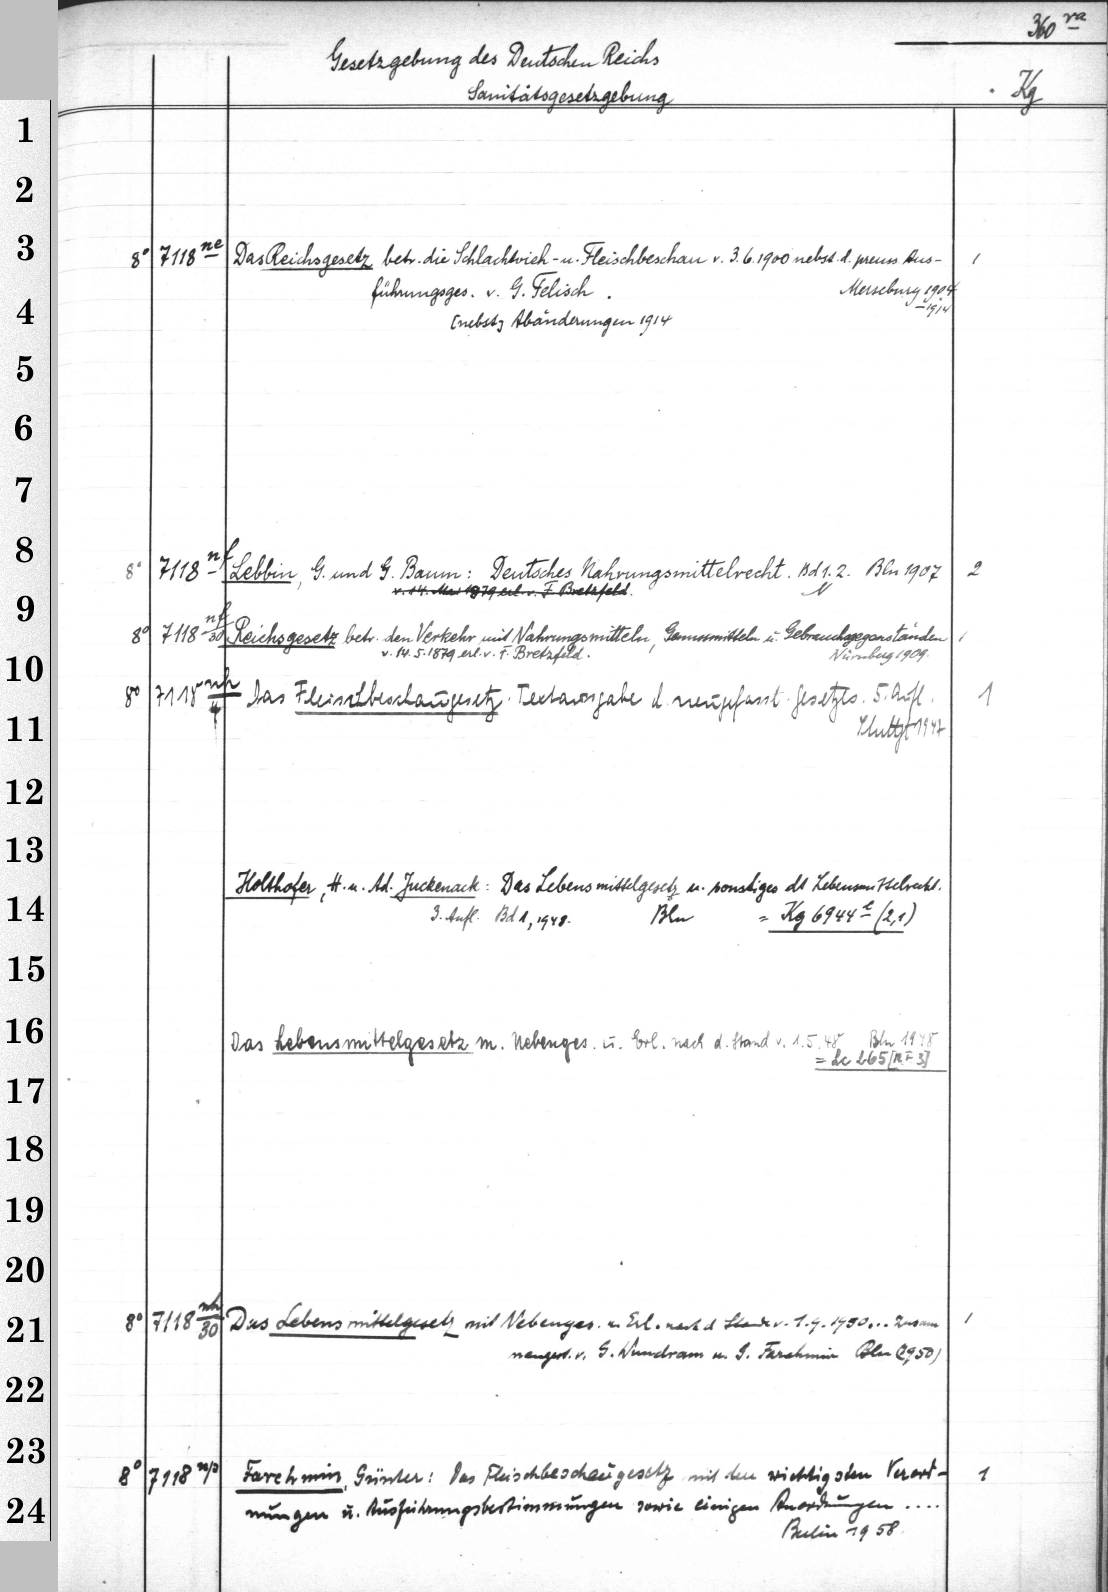 360 ra
Gesetzgebung des Deutschen Reichs
Sanitätsgesetzgebung
Kg
1
2
3
8° 7118 ne Das Reichsgesetz betr. die Schlachtvieh- u. Fleischbeschau v. 3.6.1900 nebst d. preuss Aus- 1
führungsges. v. G. Felisch. Merseburg 1904
-1914
4
[nebst] Abänderungen 1914
5
6
7
8
8° 7118 nf Lebbin, G. und G. Baum: Deutsches Nahrungsmittelrecht. Bd 1. 2. Bln 1907 2
v. 14. Mai 1879 erl. v. F. Bretzfeld.
9
8° 7118 nf/30 Reichsgesetz betr. den Verkehr mit Nahrungsmitteln, Genussmitteln u. Gebrauchsgegenständen 1
v. 14.5.1879 erl. v. F. Bretzfeld. Nürnberg 1909.
10
8° 7118 nh/4 Das Fleischbeschaugesetz. Textausgabe d. neugefasst. Gesetzes. 5. Aufl. 1
11
Stuttgt 1947
12
13
Holthöfer, H. u. Ad. Juckenack: Das Lebensmittelgesetz u. sonstiges dt Lebensmittelrecht.
14
3. Aufl. Bd 1, 1948. Bln = Kg 6944 e (2,1)
15
16
Das Lebensmittelgesetz m. Nebenges. u. Erl. nach d. Stand v. 1.5.48 Bln 1948
= Lc 265 [N.F 3]
17
18
19
20
8° 7118 nh/30 Das Lebensmittelgesetz mit Nebenges. u. Erl. nach d Stande v. 1.9.1950... Zusam 1
21
mengest. v. G. Wundram u. G. Farchmin Bln (1950)
22
23
8° 7118 np Farchmin, Günter: Das Fleischbeschaugesetz mit den wichtigsten Verord- 1
24
nungen u. Ausführungsbestimmungen sowie einigen Anordnungen ....
Berlin 1958.